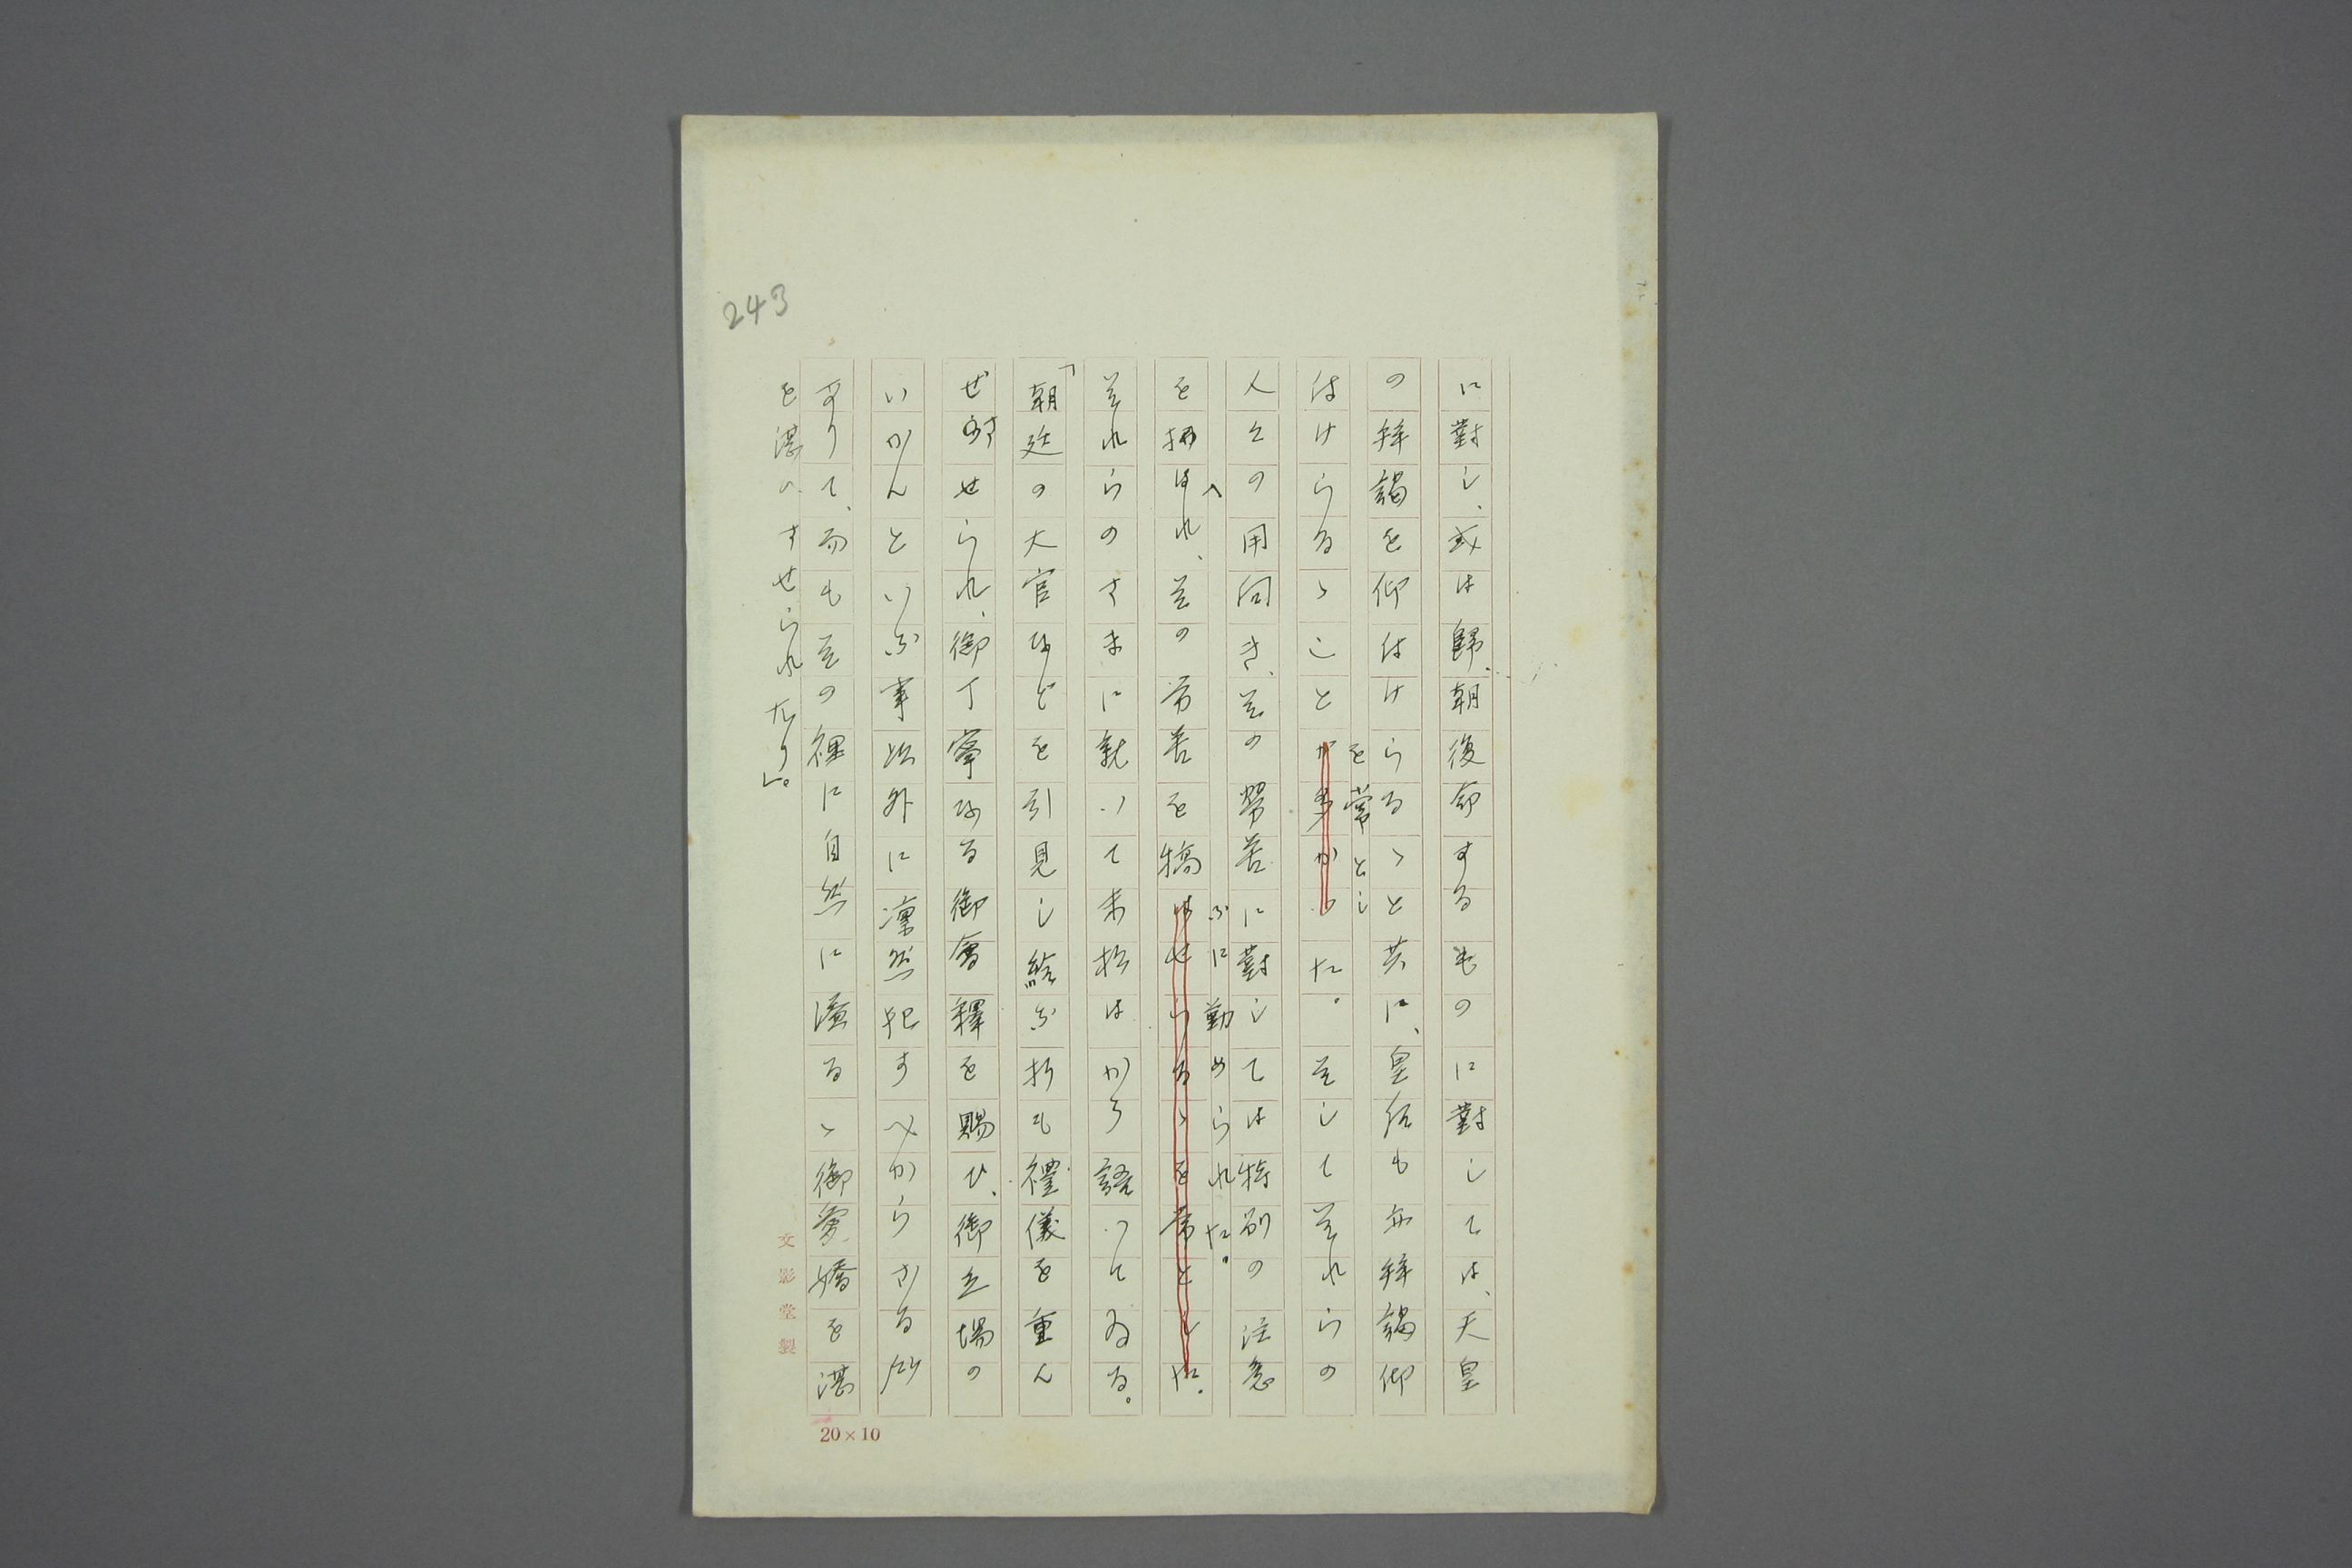 243
に對し、或は歸朝後命するものに對しては、天皇
の拜謁を仰付けらるゝと共に、皇后も亦拜謁仰
付けらるゝことが多かった。そしてそれらの
を常とし
人々の用向き、その勞苦に對しては特別の注意
を拂はれ、その労苦を犒はせらるゝを常とした。
へ
ぶに勤められた。
それらのさまに就いて末松はかう語つてゐる。
「朝廷の大官などを引見し給ふ折も禮儀を重ん
ぜさせられ、御丁寧なる御會釋を賜ひ、御立場の
いかんといふ事以外に凛然犯すべからざる所
ありて、而も其の裡に自然に溢るゝ御愛嬌を湛
を湛へすせられたり」。
文影堂製
20×10